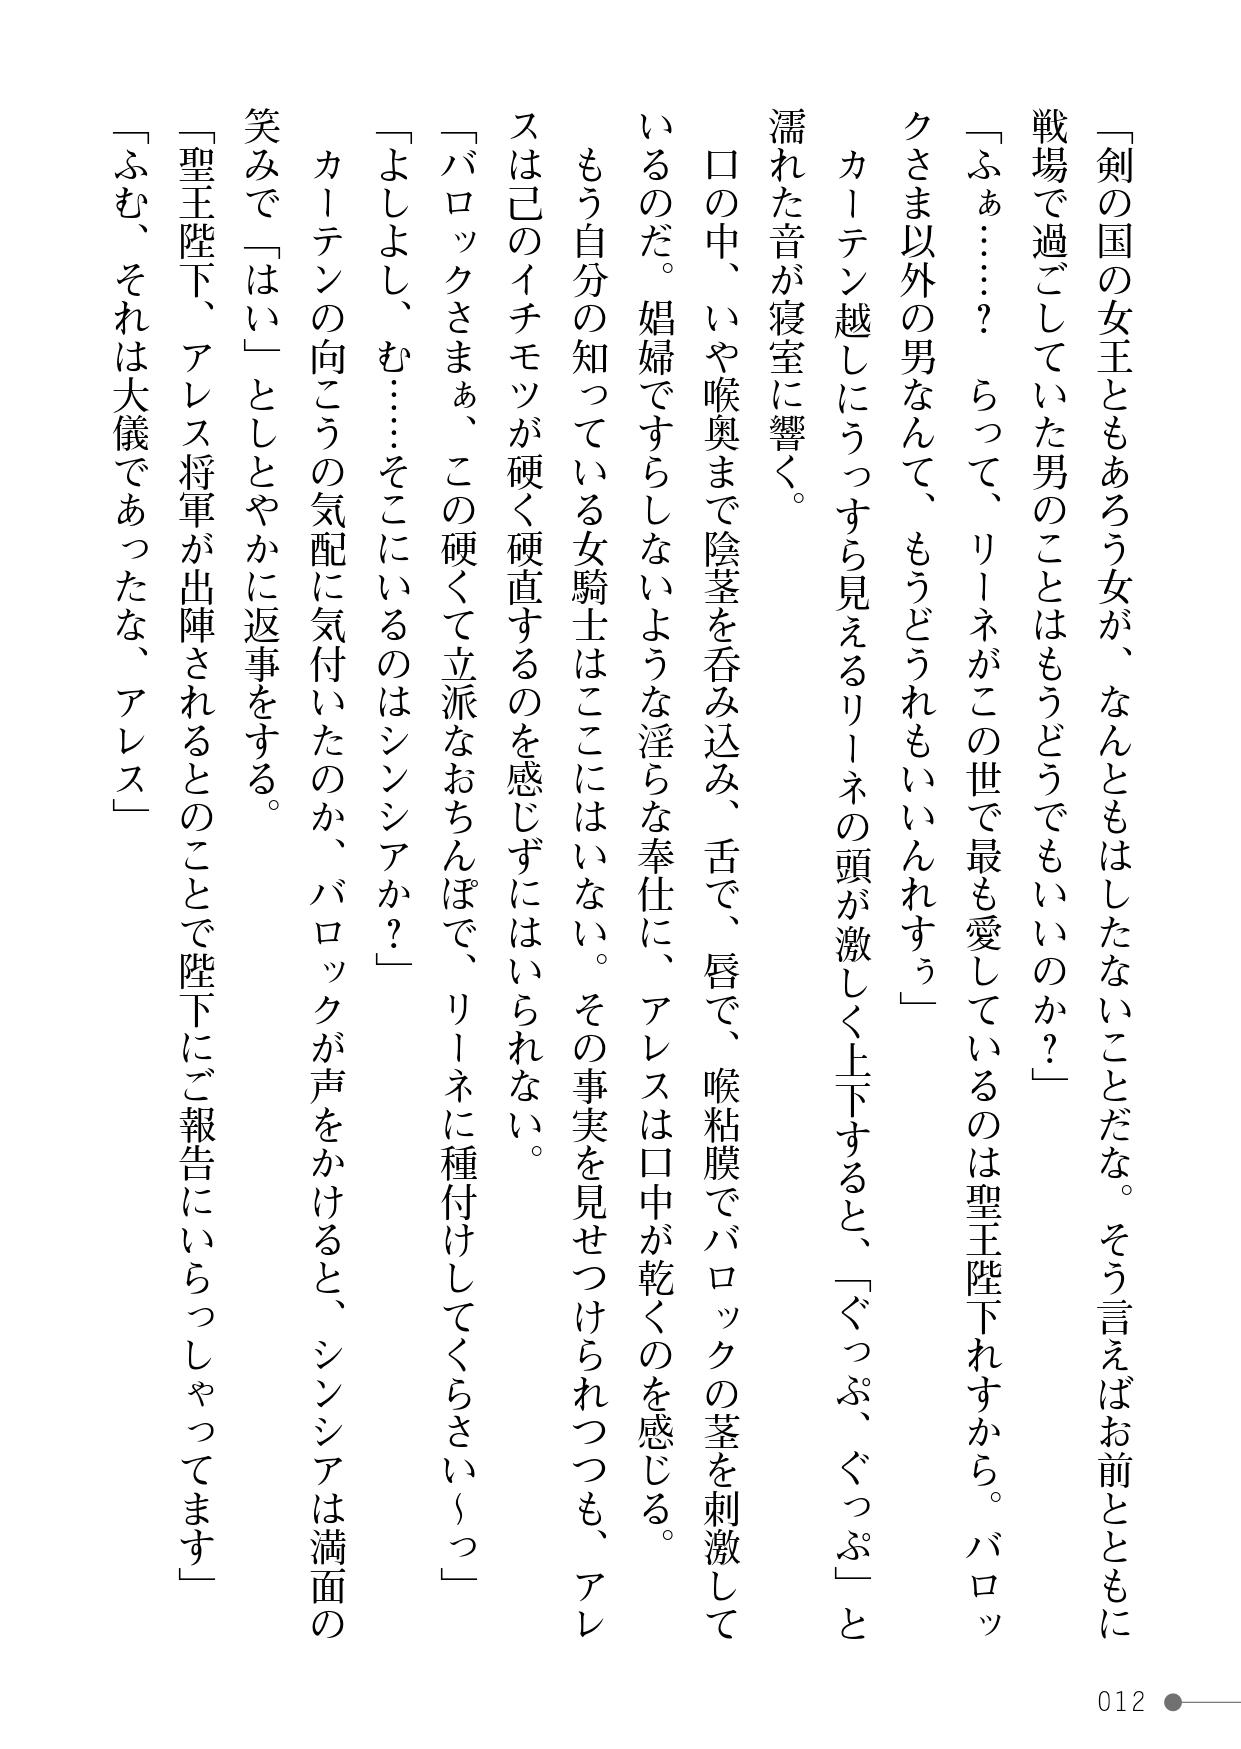 「剣の国の女王ともあろう女が、なんともはしたないことだな。そう言えばお前とともに
戦場で過ごしていた男のことはもうどうでもいいのか？」
「ふぁ……？　らって、リーネがこの世で最も愛しているのは聖王陛下れすから。バロッ
クさま以外の男なんて、もうどうれもいいんれすぅ」
　カーテン越しにうっすら見えるリーネの頭が激しく上下すると、「ぐっぷ、ぐっぷ」と
濡れた音が寝室に響く。
　口の中、いや喉奥まで陰茎を呑み込み、舌で、唇で、喉粘膜でバロックの茎を刺激して
いるのだ。娼婦ですらしないような淫らな奉仕に、アレスは口中が乾くのを感じる。
　もう自分の知っている女騎士はここにはいない。その事実を見せつけられつつも、アレ
スは己のイチモツが硬く硬直するのを感じずにはいられない。
「バロックさまぁ、この硬くて立派なおちんぽで、リーネに種付けしてくらさい～っ」
「よしよし、む……そこにいるのはシンシアか？」
　カーテンの向こうの気配に気付いたのか、バロックが声をかけると、シンシアは満面の
笑みで「はい」としとやかに返事をする。
「聖王陛下、アレス将軍が出陣されるとのことで陛下にご報告にいらっしゃってます」
「ふむ、それは大儀であったな、アレス」
012